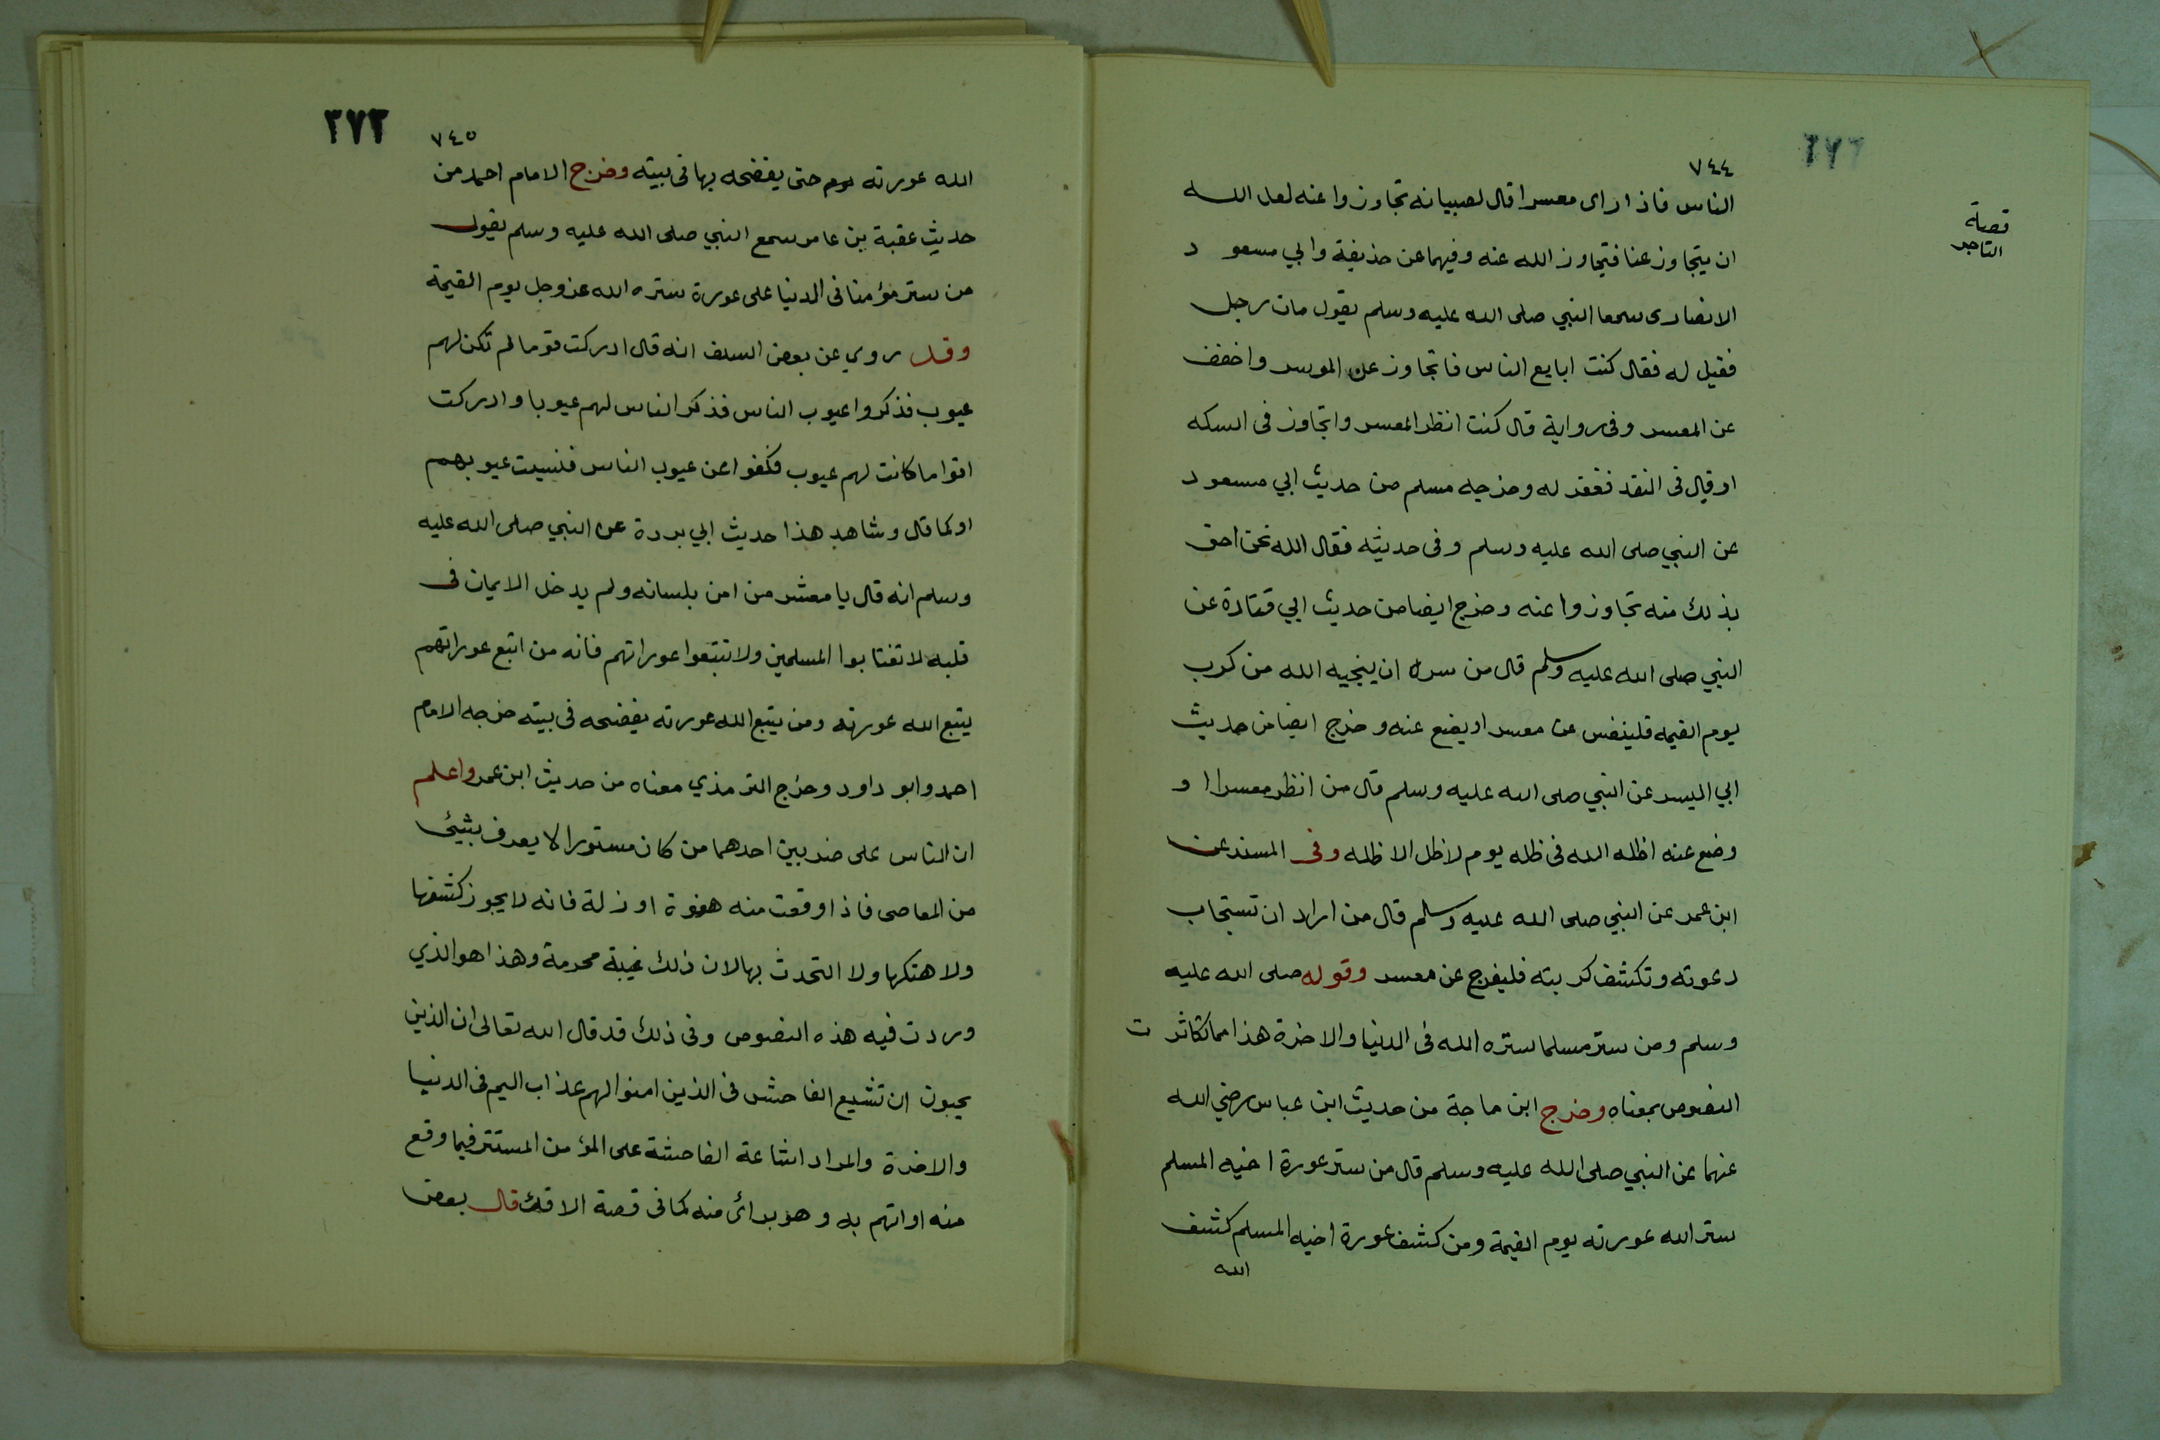 ٧٤٤
قصة
التاجر
الناس فاذا راى معسرا قال لصبيانه تجاوزوا عنه لعل الله
ان يتجاوز عنا فتجاوز الله عنه وفيهما عن حذيفة وابي مسعود
الانصارى سمعا النبي صلى الله عليه وسلم يقول مات رجل
فقيل له فقال كنت ابايع الناس فاتجاوز عن الموسر واخفف
عن المعسر وفى رواية قال كنت انظر المعسر واتجاوز فى السكه
او قال فى النقد فغفر له وخرجه مسلم من حديث ابي مسعود
عن النبي صلى الله عليه وسلم وفى حديثه فقال الله نحن احق
بذلك منه تجاوزوا عنه وخرج ايضا من حديث ابي قتادة عن
النبي صلى الله عليه وسلم قال من سره ان ينجيه الله من كرب
يوم القيمه فلينفس عن معسر او يضع عنه وخرج ايضا من حديث
ابي اليسر عن النبي صلى الله عليه وسلم قال من انظر معسرا ا و
وضع عنه اظله الله فى ظله يوم لا ظل الا ظله وفى المسند عن
ابن عمر عن النبي صلى الله عليه وسلم قال من اراد ان تستجاب
دعوته وتكشف كربته فليفرج عن معسر وقوله صلى الله عليه
وسلم ومن ستر مسلما ستره الله فى الدنيا والاخرة هذا مما تكاثرت
النصوص بمعناه وخرج ابن ماجة من حديث ابن عباس رضي الله
عنهما عن النبي صلى الله عليه وسلم قال من ستر عورة اخيه المسلم
ستر الله عورته يوم القيمة ومن كشف عورة اخيه المسلم كشف
الله
٢٧٣
٧٤٥
الله عورته يوم حتى يفضحه بها فى بيته وخرج الامام احمد من
حديث عقبة بن عامر سمع النبي صلى الله عليه وسلم يقول
من ستر مؤمنا فى الدنيا على عورة ستره الله عز وجل يوم القيمة
وقد روي عن بعض السلف انه قال ادركت قوما لم تكن لهم
عيوب فذكروا عيوب الناس فذكر الناس لهم عيوبا وادركت
اقواما كانت لهم عيوب فكفوا عن عيوب الناس فنسيت عيوبهم
او كما قال وشاهد هذا حديث ابي بردة عن النبي صلى الله عليه
وسلم انه قال يا معشر من امن بلسانه ولم يدخل الايمان فى
قلبه لا تغتابوا المسلمين ولا تتبعوا عوراتهم فانه من اتبع عوراتهم
يتبع الله عورته ومن يتبع الله عورته يفضحه فى بيته خرجه الامام
احمد وابو داود وخرج الترمذي معناه من حديث ابن عمر واعلم
ان الناس على ضربين احدهما من كان مستورا لا يعرف بشيئ
من المعاصى فاذا وقعت منه هفوة او زلة فانه لا يجوز كشفها
ولا هتكها ولا التحدث بها لان ذلك غيبة محرمة وهذا هو الذي
وردت فيه هذه النصوص وفى ذلك قد قال الله تعالى ان الذين
يحبون ان تشيع الفاحش فى الذين امنوا لهم عذاب اليم فى الدنيا
والاخرة والمراد اشاعة الفاحشة على المؤمن المستتر فيما وقع
منه او اتهم به وهو برائ منه كما فى قصة الافك قال بعض